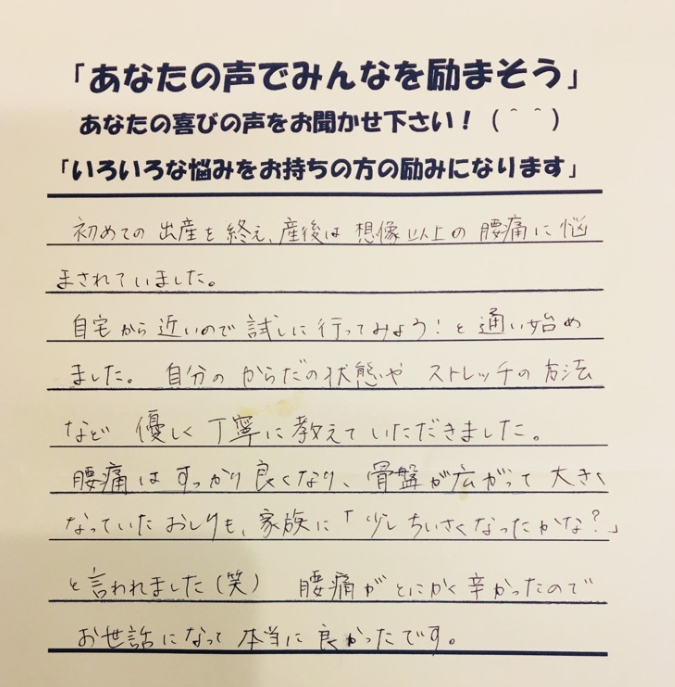 「あなたの声でみんなを励まそう」
あなたの喜びの声をお聞かせ下さい！（＾＾）
「いろいろな悩みをお持ちの方の励みになります」
初めての出産を終え、産後は想像以上の腰痛に悩
まされていました。
自宅から近いので試しに行ってみよう！と通い始め
ました。自分のからだの状態やストレッチの方法
など優しく丁寧に教えていただきました。
腰痛はすっかり良くなり、骨盤が広がって大きく
なっていたおしりも、家族に「少しちいさくなったかな？」
と言われました（笑）　腰痛がとにかく辛かったので
お世話になって本当に良かったです。